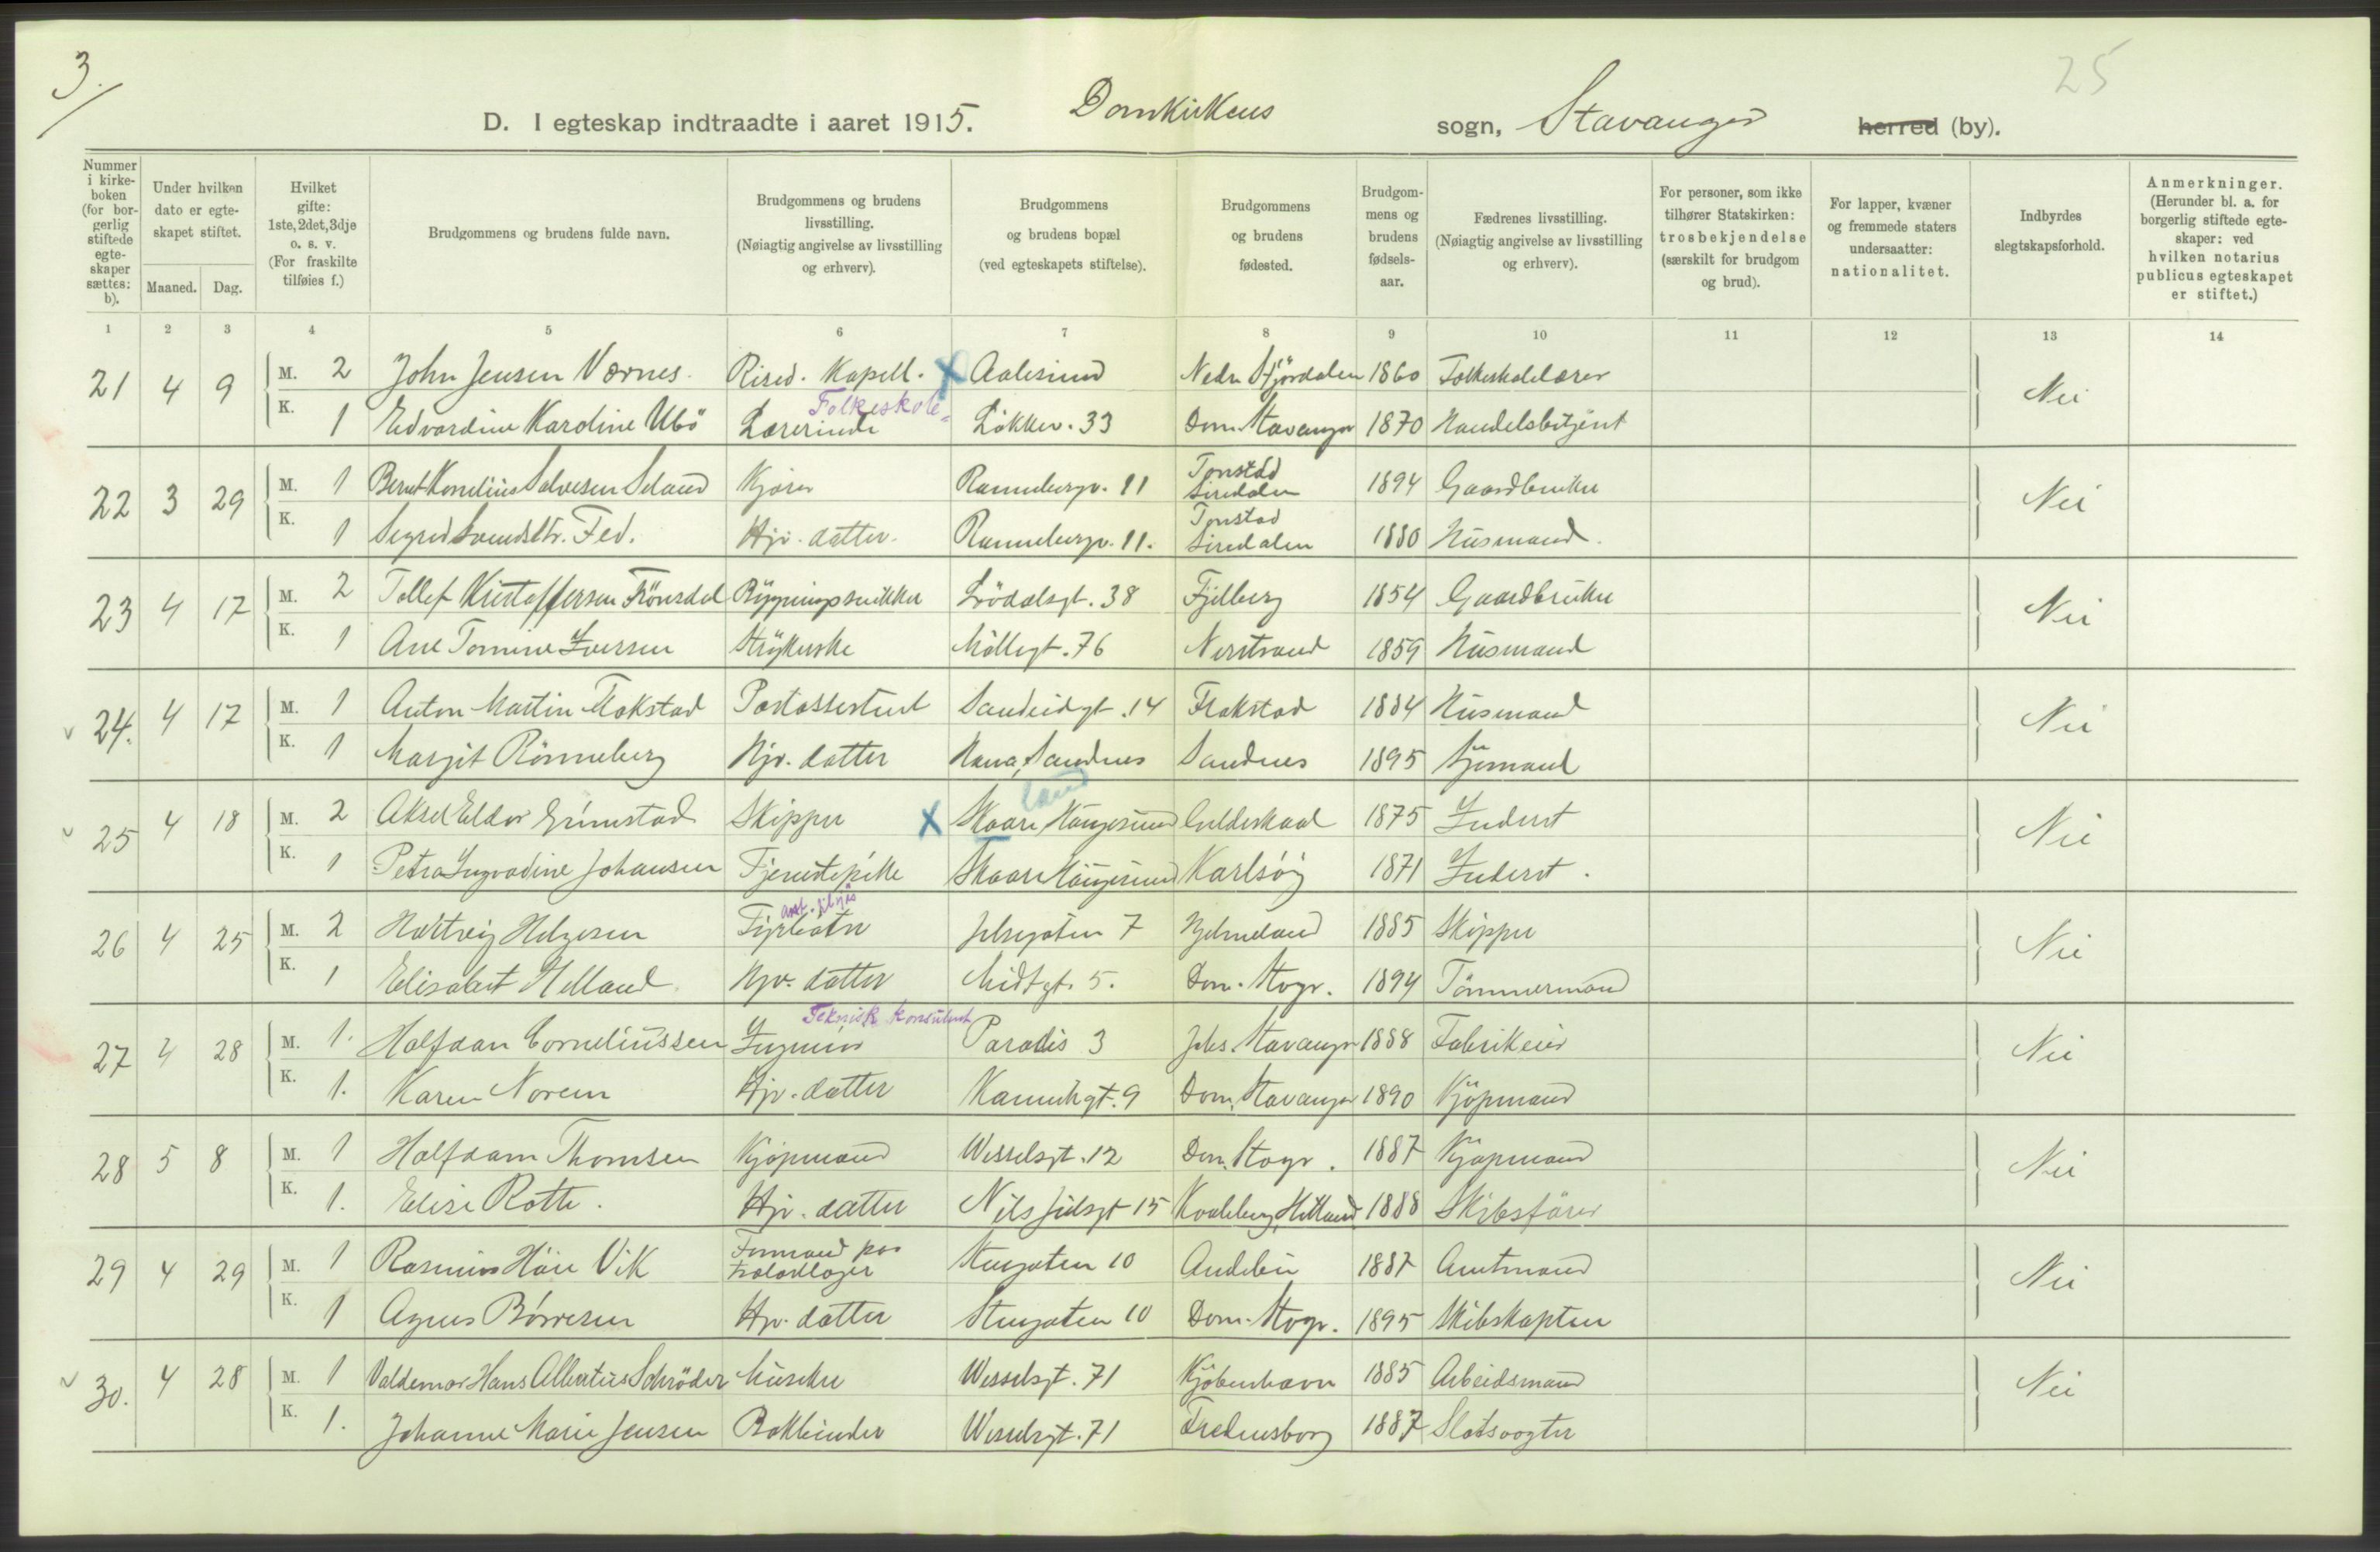 3.
25
D. I egteskap indtraadte i aaret 1915. Domkirkens sogn, Stavanger herred (by).
Nummer i kirke-boken (for bor-gerlig stiftede egte-skaper sættes: b).
Under hvilken dato er egte-skapet stiftet.
Maaned. Dag.
Hvilket gifte: 1ste, 2det, 3dje o. s. v. (For fraskilte tilføies f.)
Brudgommens og brudens fulde navn.
Brudgommens og brudens livsstilling. (Nøiagtig angivelse av livsstilling og erhverv).
Brudgommens og brudens bopæl (ved egteskapets stiftelse).
Brudgommens og brudens fødested.
Brudgom-mens og brudens fødsels-aar.
Fædrenes livsstilling. (Nøiagtig angivelse av livsstilling og erhverv).
For personer, som ikke tilhører Statskirken: trosbekjendelse (særskilt for brudgom og brud).
For lapper, kvæner og fremmede staters undersaatter: nationalitet.
Indbyrdes slegtskapsforhold.
Anmerkninger. (Herunder bl. a. for borgerlig stiftede egte-skaper: ved hvilken notarius publicus egteskapet er stiftet.)
1 2 3 4 5 6 7 8 9 10 11 12 13 14
21 4 9 M. 2 John Jensen Værnes. Resid. Kapell. X Aalesund Nedr. Stjördalen 1860 Folkeskolelærer Nei
Folkeskole-
K. 1 Edvardine Karoline Ubö Lærerinde Lökkev. 33 Dom. Stavanger 1870 Handelsbetjent
22 3 29 M. 1 Bernt Kornelius Salvesen Seland Kjörer Ramsbergv. 11 Tonstad Siredalen 1894 Gaardbruker Nei
K. 1 Sigrid Svendsdtr. Fed. Hjv. datter. 11. Tonstad Siredalen 1880 Husmand.
23 4 17 M. 2 Tollef Kristoffersen Trönsdal Bygningssnikker Lödalsgt. 38 Fjelberg 1854 Gaardbruker Nei
K. 1 Ane Tomine Iversen Strykerske Möllegt. 76 Nerstrand 1859 Husmand
24. 4 17 M. 1 Anton Martin Flakstad Postassistent Sandeidgt. 14 Flakstad 1884 Husmand Nei
K. 1 Margit Rönneberg Hjv. datter Hana, Sandnes Sandnes 1895 Sjömand
land
25 4 18 M. 2 Aksel Eldor Grimstad Skipper X Skaare, Haugesund Gildeskaal 1875 Inderst Nei
K. 1 Petra Ingvadine Johansen Tjenestepike Skaare Haugesund Karlsöy 1871 Inderst.
26 4 25 M. 2 Helgesen Fyrböter 7 Hjelmeland 1885 Skipper Nei
K. 1 Elisabet Helland Hjv. datter Midtgt. 5. Dom. Stvgr. 1894 Tömmermand
Teknisk konsulent
27 4 28 M. 1. Halfdan Corneliussen Ingeniör Paradis 3 Johs. Stavanger 1888 Fabrikeier Nei
K. 1. Karen Norem Hjv. datter Kannikgt. 9 Dom. Stavanger 1890 Kjöpmand
28 5 8 M. 1 Halfdam Thomsen Kjöpmand Wesselsgt. 12 Dom. Stvgr. 1887 Kjöpmand Nei
K. 1. Elise Rotte. Hjv. datter Nils Juelsgt 15 Kvaleberg, Hetland 1888 Skibsförer
29 4 29 M. 1 Rasmus Höie Vik Formand paa Stengaten 10 Andebu 1887 Amtmand Nei
K. 1 Agnes Börresen Hjv. datter Stengaten 10 Dom. Stvgr. 1895 Skibskaptein
30. 4 28 M. 1 Valdemar Hans Albertus Schröder Musiker Wesselsgt. 71 Kjöbenhavn 1885 Arbeidsmand Nei
K. 1. Johanne Marie Jensen Bokbinder Wesselsgt. 71 Fredensborg 1887 Slotsvogter